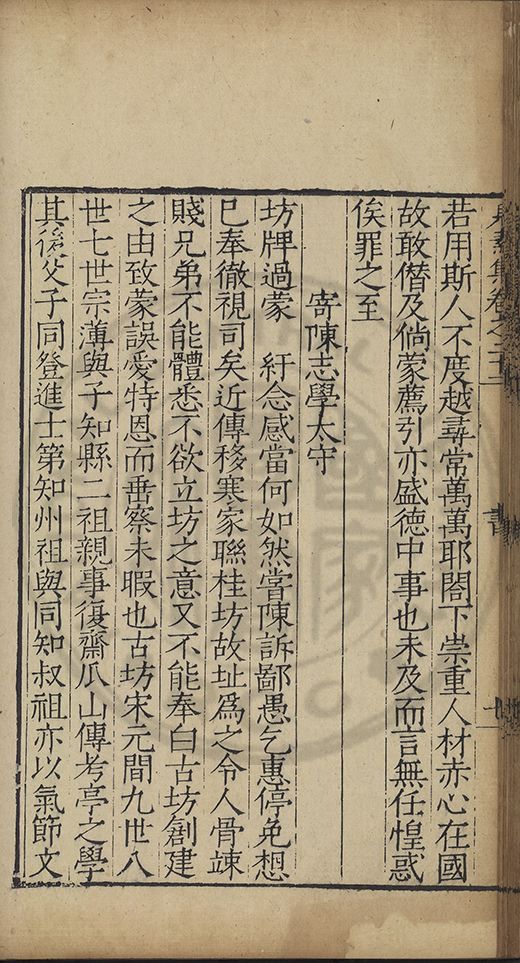 集卷之二十二
書
若用斯人不度越尋常萬萬耶閤下崇重人材赤心在國
故敢僭及倘蒙薦引亦盛德中事也未及而言無任惶惑
俟罪之至
寄陳志學太守
坊牌過蒙 紆念感當何如然嘗陳訴鄙愚乞惠停免想
巳奉徹視司矣近傳移寒家聯桂坊故址爲之令人骨竦
賤兄弟不能體悉不欲立坊之意又不能奉白古坊創建
之由致蒙誤愛特恩而垂察未暇也古坊宋元間九世八
世七世宗薄與子知縣二祖親事復齋瓜山傳考亭之學
其後父子同登進士第知州祖與同知叔祖亦以氣節文